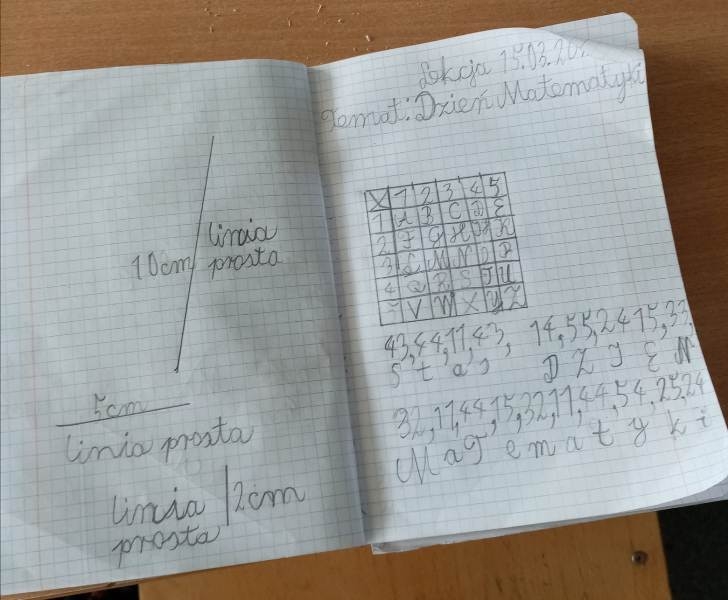 10cm linia
prosta
5cm
linia prosta
linia 2cm
prosta
Lekcja 15.03.20
Temat: Dzień Matematyki
X 1 2 3 4 5
1 A B C D E
2 F G H IJ K
3 L M N O P
4 Q R S T U
5 V W X Y Z
43,44,11,43, 14,55,24 15,33,
S t a s D Z J E N
32,11,44,15,32,11,44,54,25,24
M a T e m a t y k i